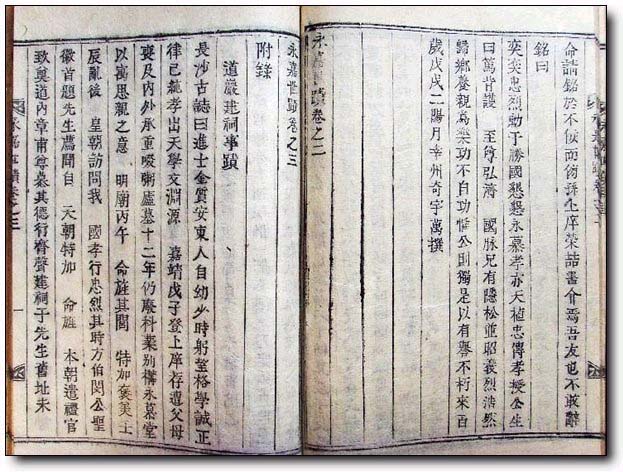 命請銘於不佞而孫上庠榮喆書介焉吾友也不敢辭
銘曰
奕奕忠烈勳于勝國懇懇永慕孝亦天植忠傳孝授公生
曰篤背護 至尊弘濟 國脉兄有隱松並昭義烈浩然
歸鄉養親爲樂功不自功惟公則獨足以有譽不朽來百
歲戊戌二陽月幸州奇宇萬撰
永嘉世蹟卷之二
永嘉世蹟卷之三
附錄
道巖建祠事蹟
長沙古誌曰進士金質安東人自幼少時躬格學誠正
律己能孝出天學文淵源 嘉靖戊子登上庠存遭父母
喪及內外承重啜粥廬墓十二年仍廢科業別構永慕堂
以寓思親之意 明廟丙午 命旌其閭 特加褒美壬
辰亂後 皇朝訪問我 國孝行忠烈其時方伯閔公聖
徽首題先生薦聞自 天朝特加 命旌 本朝遣禮官
致奠道內章甫尊慕其德行齊聲建祠于先生舊址未